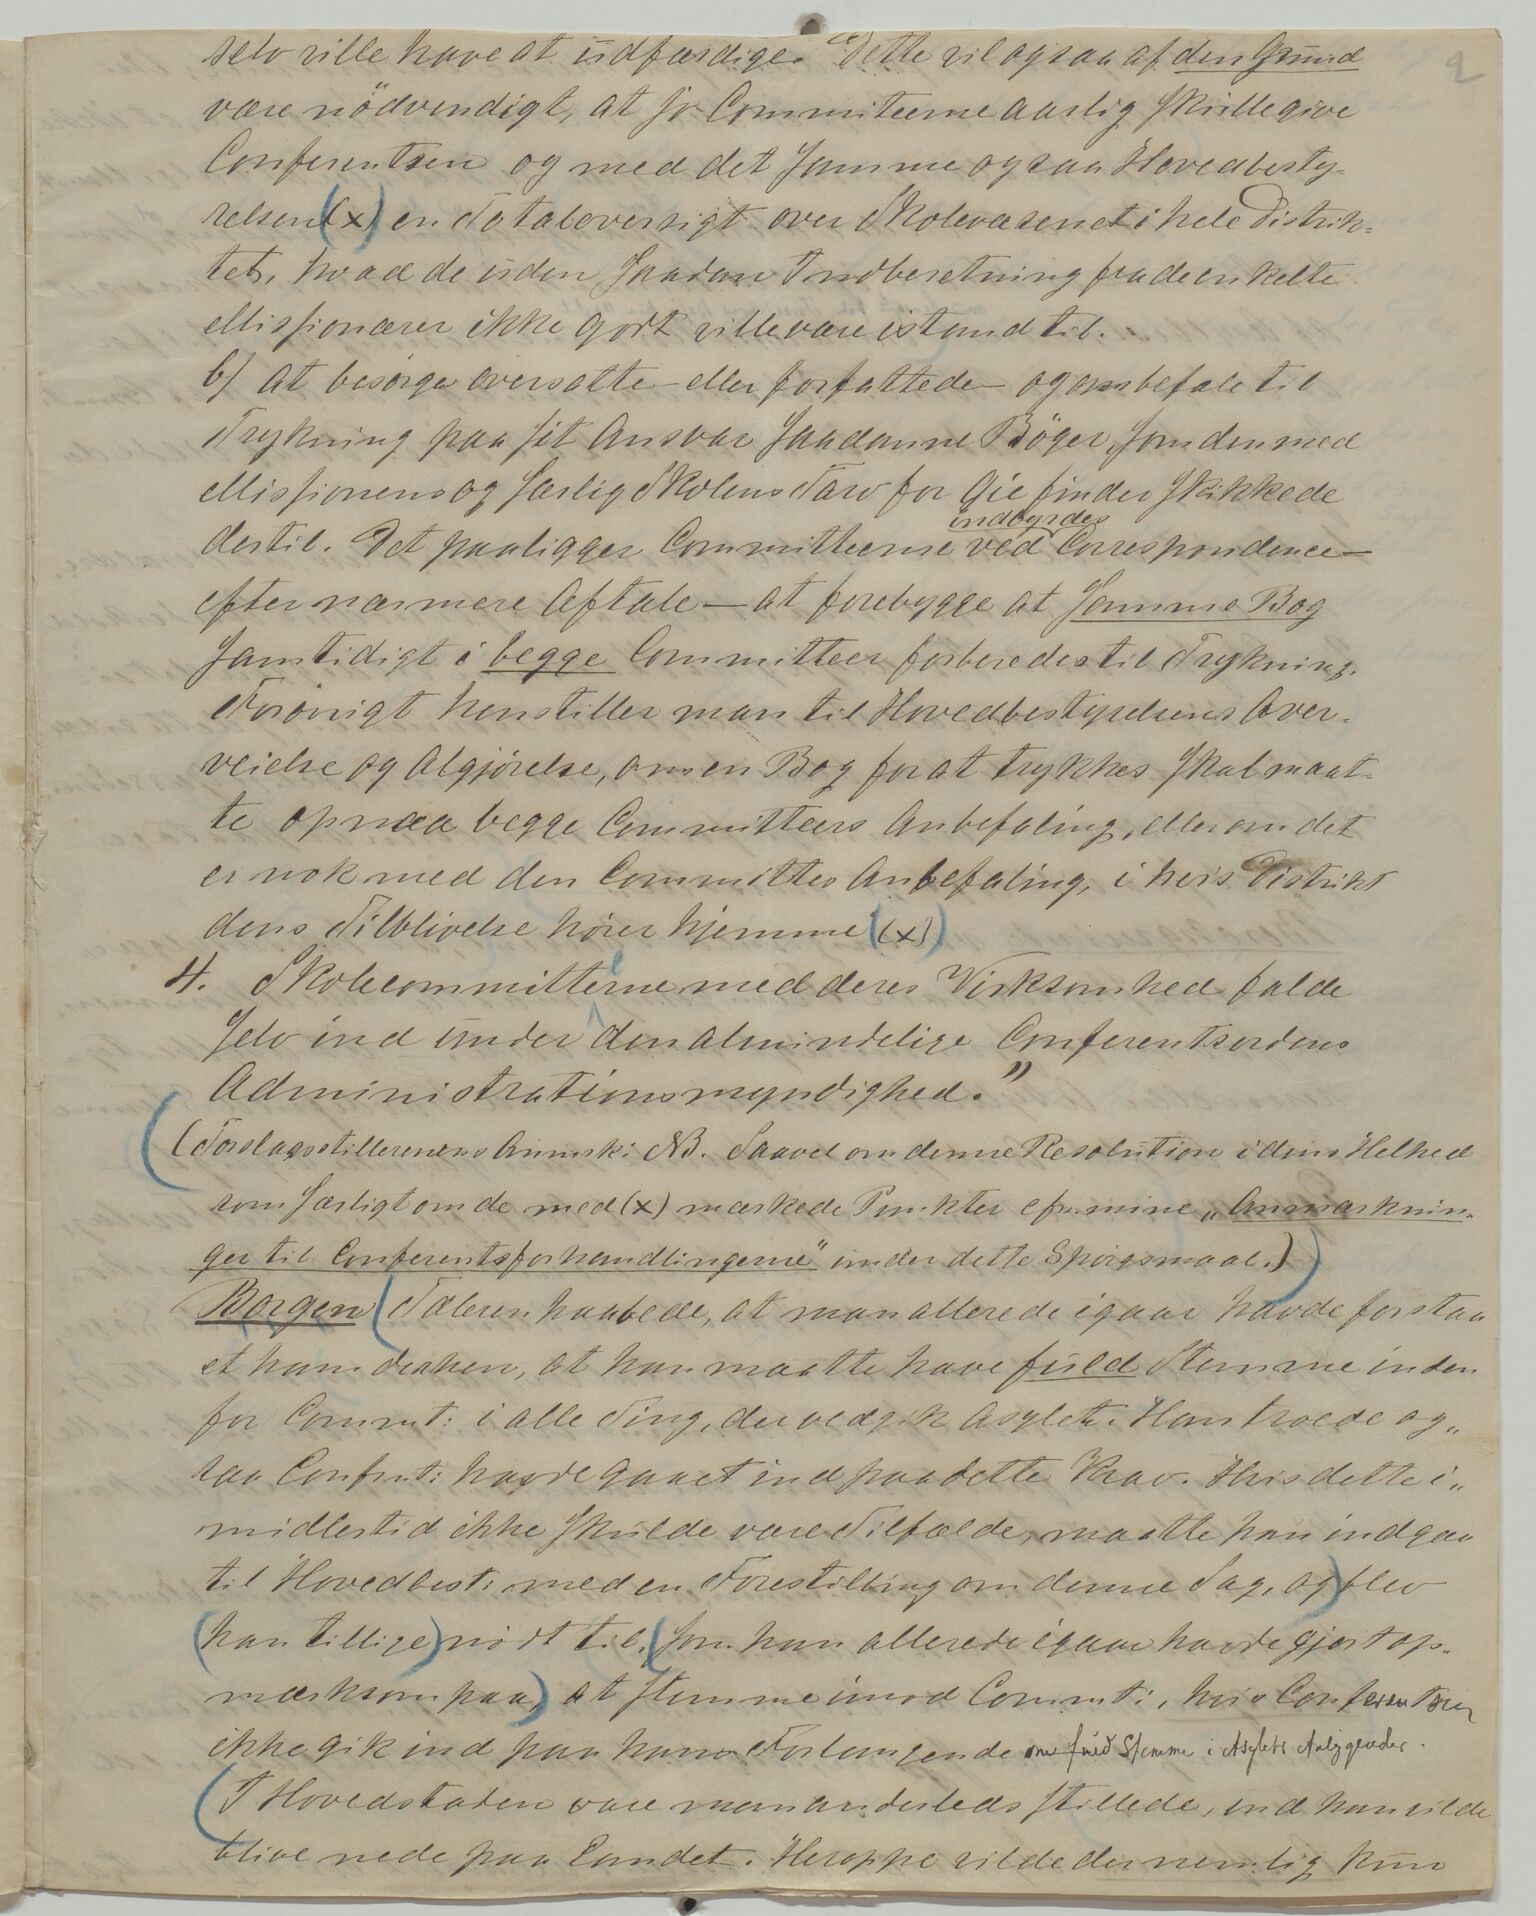 selv ville have at üdfærdige. Dette vil ogsaa af den Grund
2
være nödvendigt, at jo Committeerne aarlig skülle give
Conferentsen og med det samme ogsaa Hovedbesty-
relsen (x) en Totaloversigt over Skolevæsenet i hele Distrik-
tet, hvad de üden saadan Indberetning fra de enkelte
Missionærer ikke godt ville være istand til.
b) at besörge oversatte- eller forfattede- og anbefale til
Trykning paa sit Ansvar saadanne Böger, som den med
Missionens og særlig Skolens Tarv for Öie finder skikkede
dertil. Det paaligger Committeerne ved Correspondence-
indbyrdes
efter nærmere Aftale - at forebygge at samme Bog
samtidigt i begge Committeer forberedes til Trykning.
Forövrigt henstiller man til Hovedbestyrelsens Over-
veielse og Afgjörelse, om en Bog for at trykkes skal maat-
te opnaa begge Committeers Anbefaling, eller om det
er nok med den Committes Anbefaling, i hvis Distrikt
dens Tilblivelse hörer hjemme (x)
4. Skolecommitteerne med deres Virksomhed falde
selv ind ünder den almindelige Conferentsordens
Administrationsmyndighed."
(Forslagsstillerenens Anmsk: NB. Saavel om denne Resolütion i dens Helhed
som særligt om de med (x) mærkede Punkter cfr. mine "Anmærknin-
ger til Conferentsforhandlingerne" ünder dette Spörgsmaal.)
Borgen (Taleren haabede, at man allerede igaar havde forstaa
et ham derhen, at han maatte have füld Stemme inden
for Commt: i alle Ting, der vedgik Asylet. Han troede og„
saa Confrnt: havde gaaet ind paa dette Krav. Hvis dette i„
midlertid ikke skülde være Tilfælde, maatte han indgaa
til Hovedbest: med en Forestilling om denne Sag, og) blev
(han tillige) nödt til, (som han allerede igaar havde gjort op-
mærksom paa) at stemme imod Commt:, hvis Conferentsen
ikke gik ind paa hans Forlangende om füld Stemme i Asylets Anliggender.
(I Hovedstaden vare man anderledes stillede, end han vilde
blive nede paa Landet. Heroppe vilde der nemlig kün